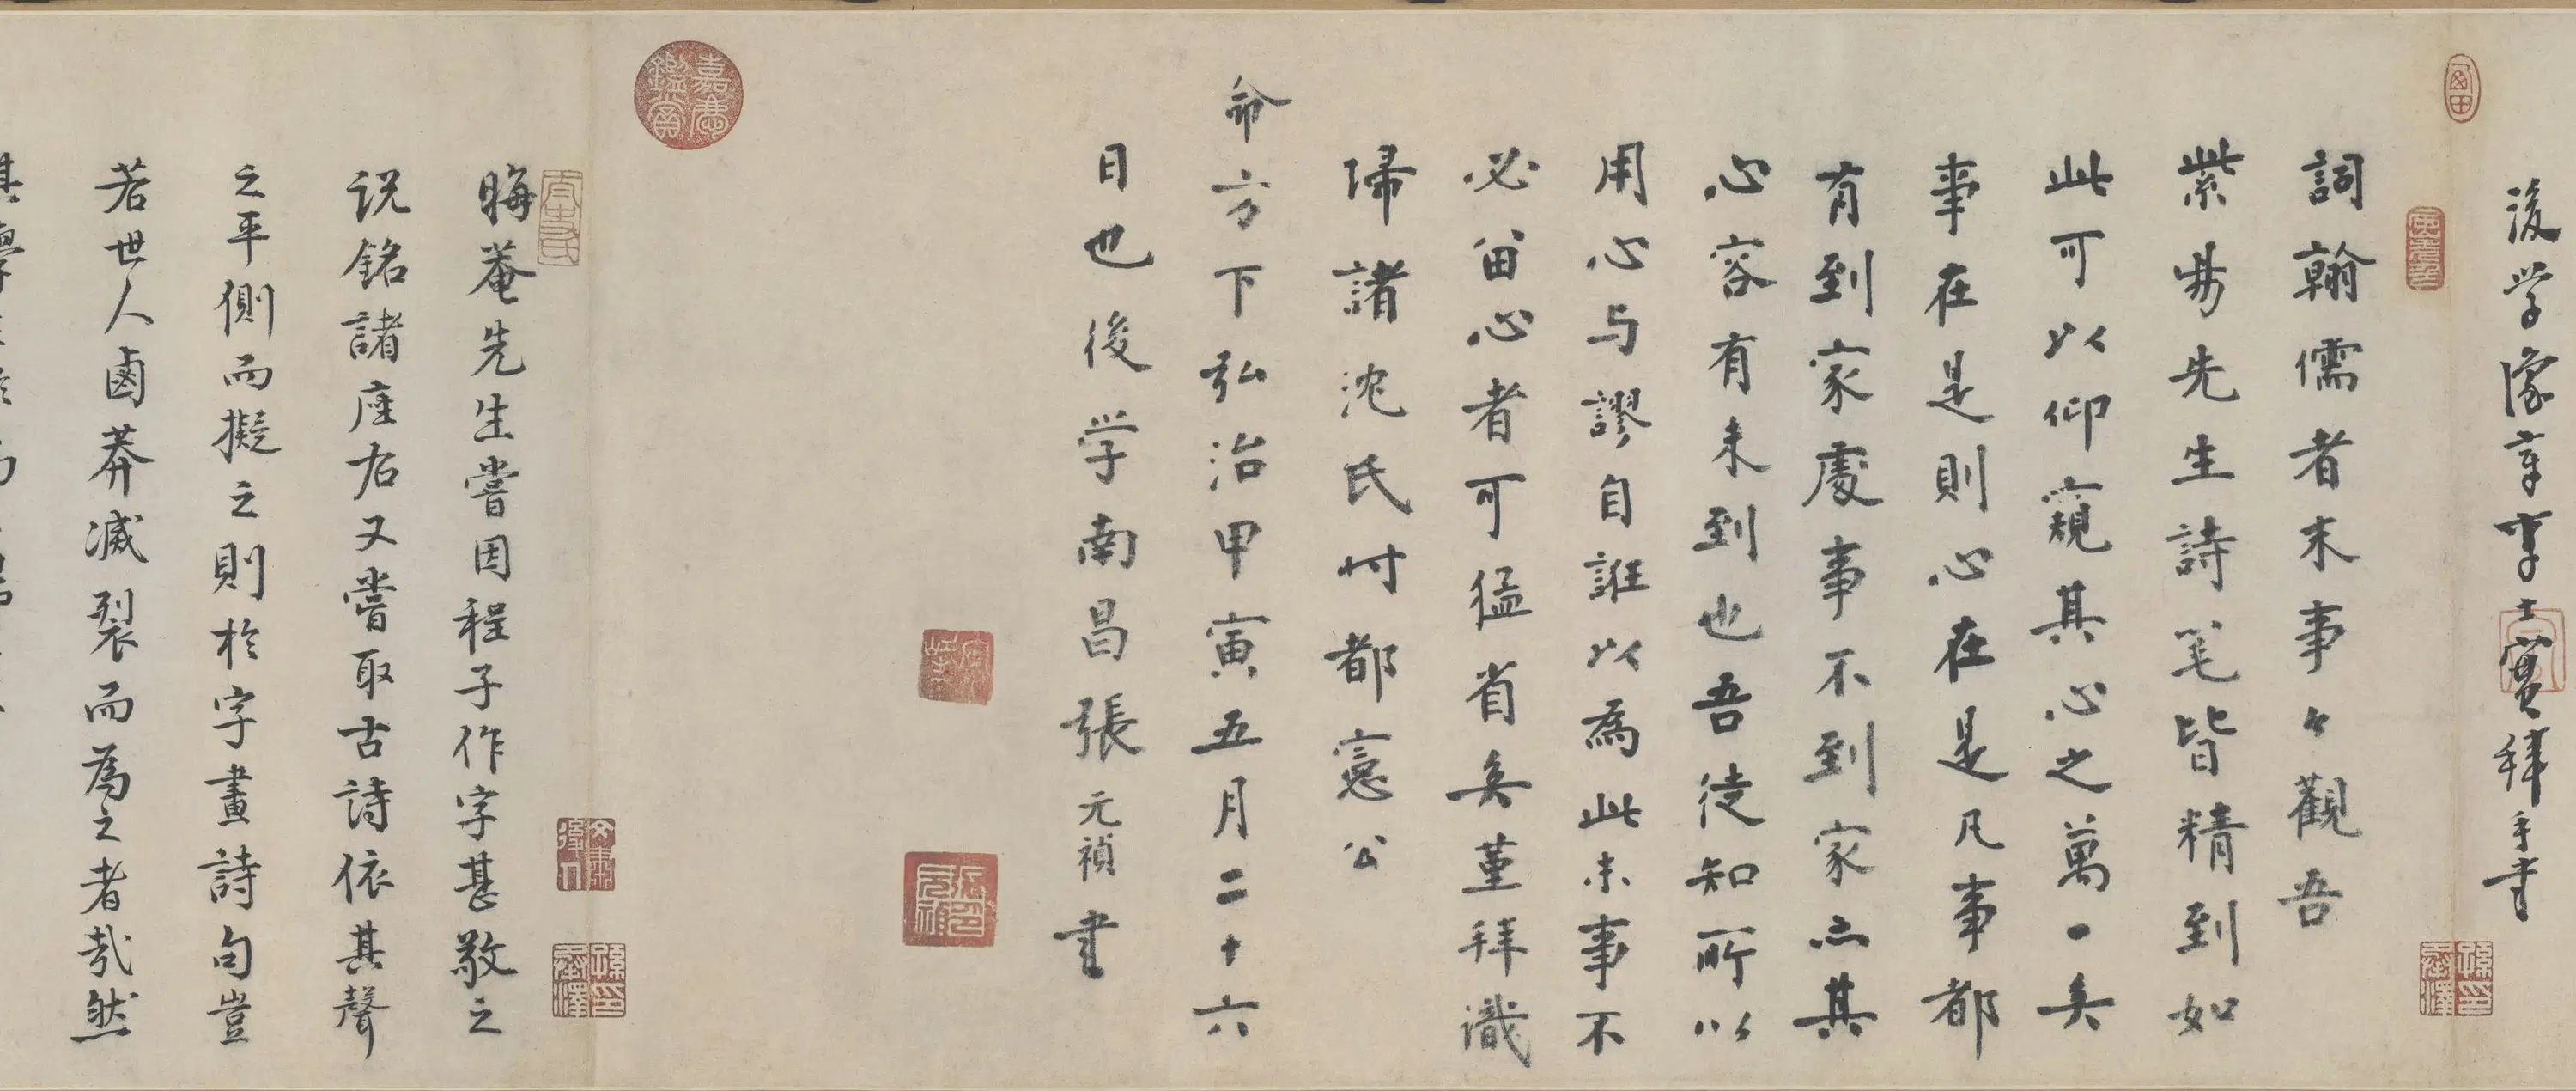 後學豫章李士實拜手書
詞翰儒者末事々觀吾
紫陽先生詩笔皆精到如
此可以仰窺其心之萬一矣
事在是則心在是凡事都
有到家處事不到家亦其
心容有未到也吾徒知所以
用心与謬自誑以為此末事不
必留心者可猛省矣菫拜識
歸諸沈氏时都憲公
命方下弘治甲寅五月二十六
日也後学南昌張元禎書
嘉慶鑑賞
晦菴先生嘗因程子作字甚敬之
说銘諸座右又嘗取古詩依其聲
之平側而擬之則於字畫詩句豈
若世人鹵莽滅裂而為之者哉然